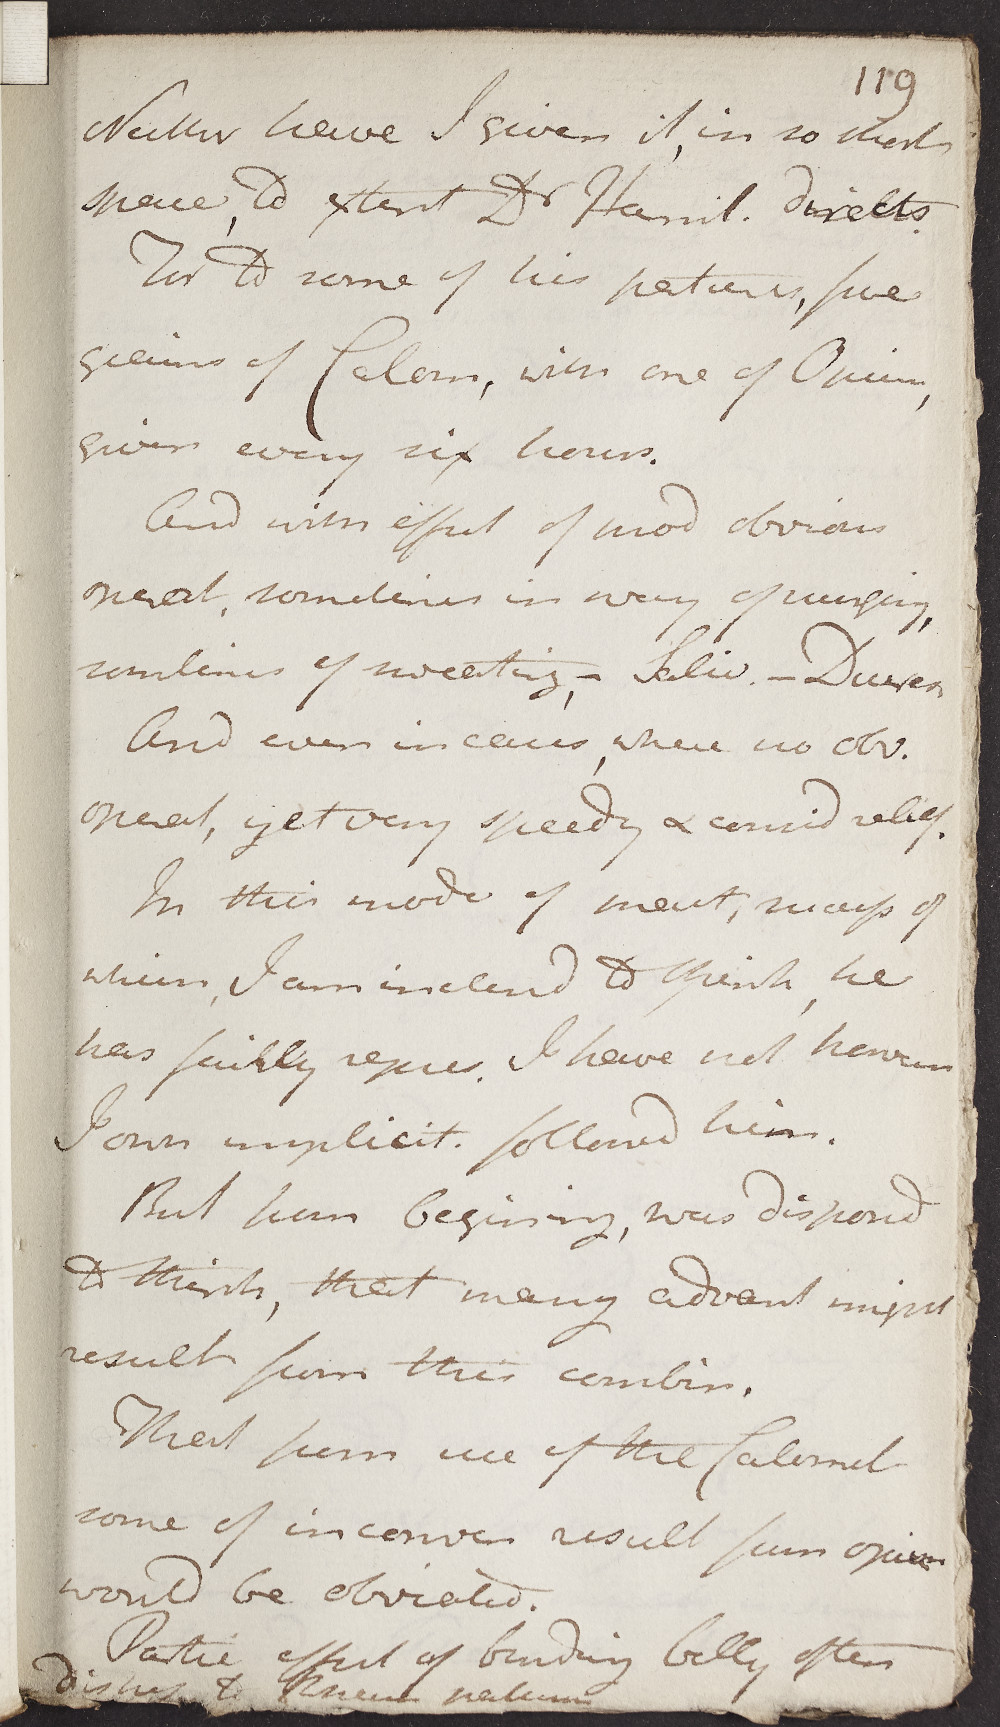 119
Neither have I given it, in so short
space, to extent Dr Hamil. directs.
For to some of his patients, five
grains of Calom, with one of Opium,
given every six hours.
And with effect of most obvious
operat, sometimes in way of purging,
somtimes of sweating, - Saliv. - Diures
And even in cases, where no obv.
operat, yet very speedy & consid relief.
In this mode of treat, succss of
which, I am inclend to think, he
has fairly repres. I have not however
I own implicit. followed him.
But from begining, was disposd
to think, that many advant might
result from this combin.
That from use of the Calomel
some of inconven result from opium
would be obviated.
Partic effect of binding belly often
distres to Rheum patients